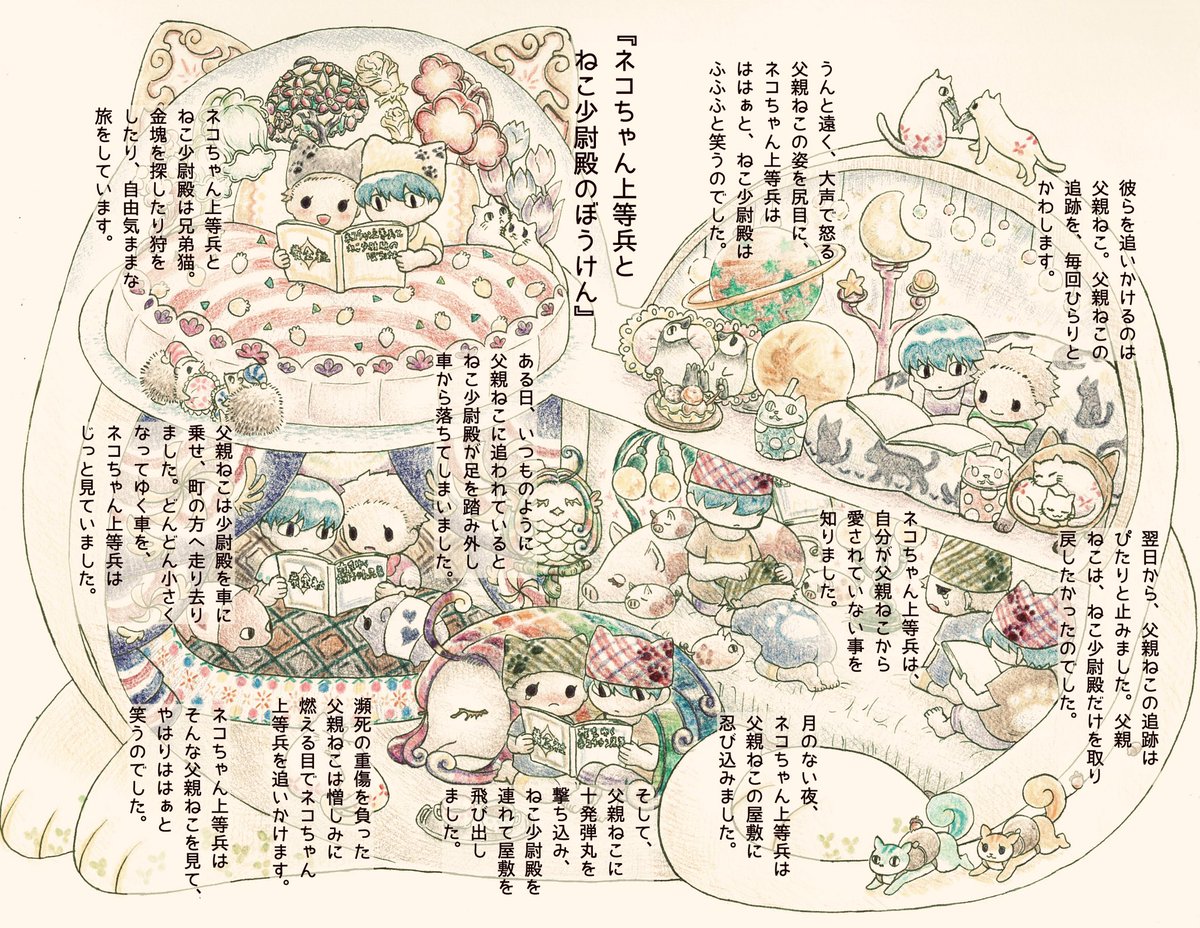 『ネコちゃん上等兵と
ねこ少尉殿のぼうけん』
ネコちゃん上等兵と
ねこ少尉殿は兄弟猫。
金塊を探したり狩を
したり、自由気ままな
旅をしています。
彼らを追いかけるのは
父親ねこ。父親ねこの
追跡を、毎回ひらりと
かわします。
うんと遠く、大声で怒る
父親ねこの姿を尻目に、
ネコちゃん上等兵は
ははぁと、ねこ少尉殿は
ふふふと笑うのでした。
ある日、いつものように
父親ねこに追われていると
ねこ少尉殿が足を踏み外し
車から落ちてしまいました。
父親ねこは少尉殿を車に
乗せ、町の方へ走り去り
ました。どんどん小さく
なってゆく車を、
ネコちゃん上等兵は
じっと見ていました。
翌日から、父親ねこの追跡は
ぴたりと止みました。父親
ねこは、ねこ少尉殿だけを取り
戻したかったのでした。
ネコちゃん上等兵は、
自分が父親ねこから
愛されていない事を
知りました。
月のない夜、
ネコちゃん上等兵は
父親ねこの屋敷に
忍び込みました。
そして、
父親ねこに
十発弾丸を
撃ち込み、
ねこ少尉殿を
連れて屋敷を
飛び出し
ました。
瀕死の重傷を負った
父親ねこは憎しみに
燃える目でネコちゃん
上等兵を追いかけます。
ネコちゃん上等兵は
そんな父親ねこを見て、
やはりははぁと
笑うのでした。